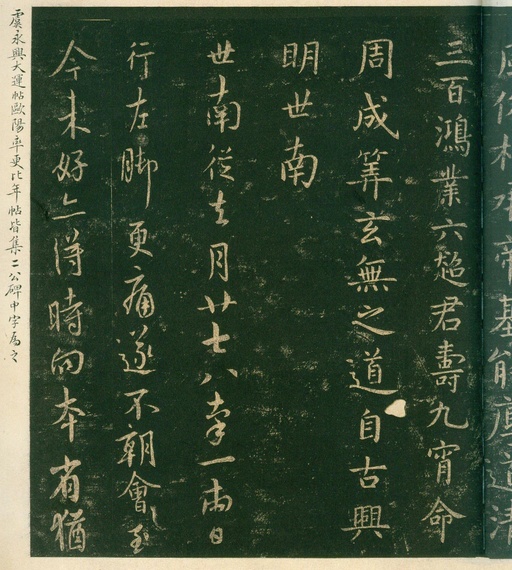 周依相承帝基能厚道清
三百鴻業六超君壽九霄命
周成筭玄無之道自古興
明世南
世南從去月廿七八率一兩日
行左脚更痛遂不朝會至
今未好亦得時向本省猶
虞永興大運帖歐陽率更比年帖皆集二公碑中字為之